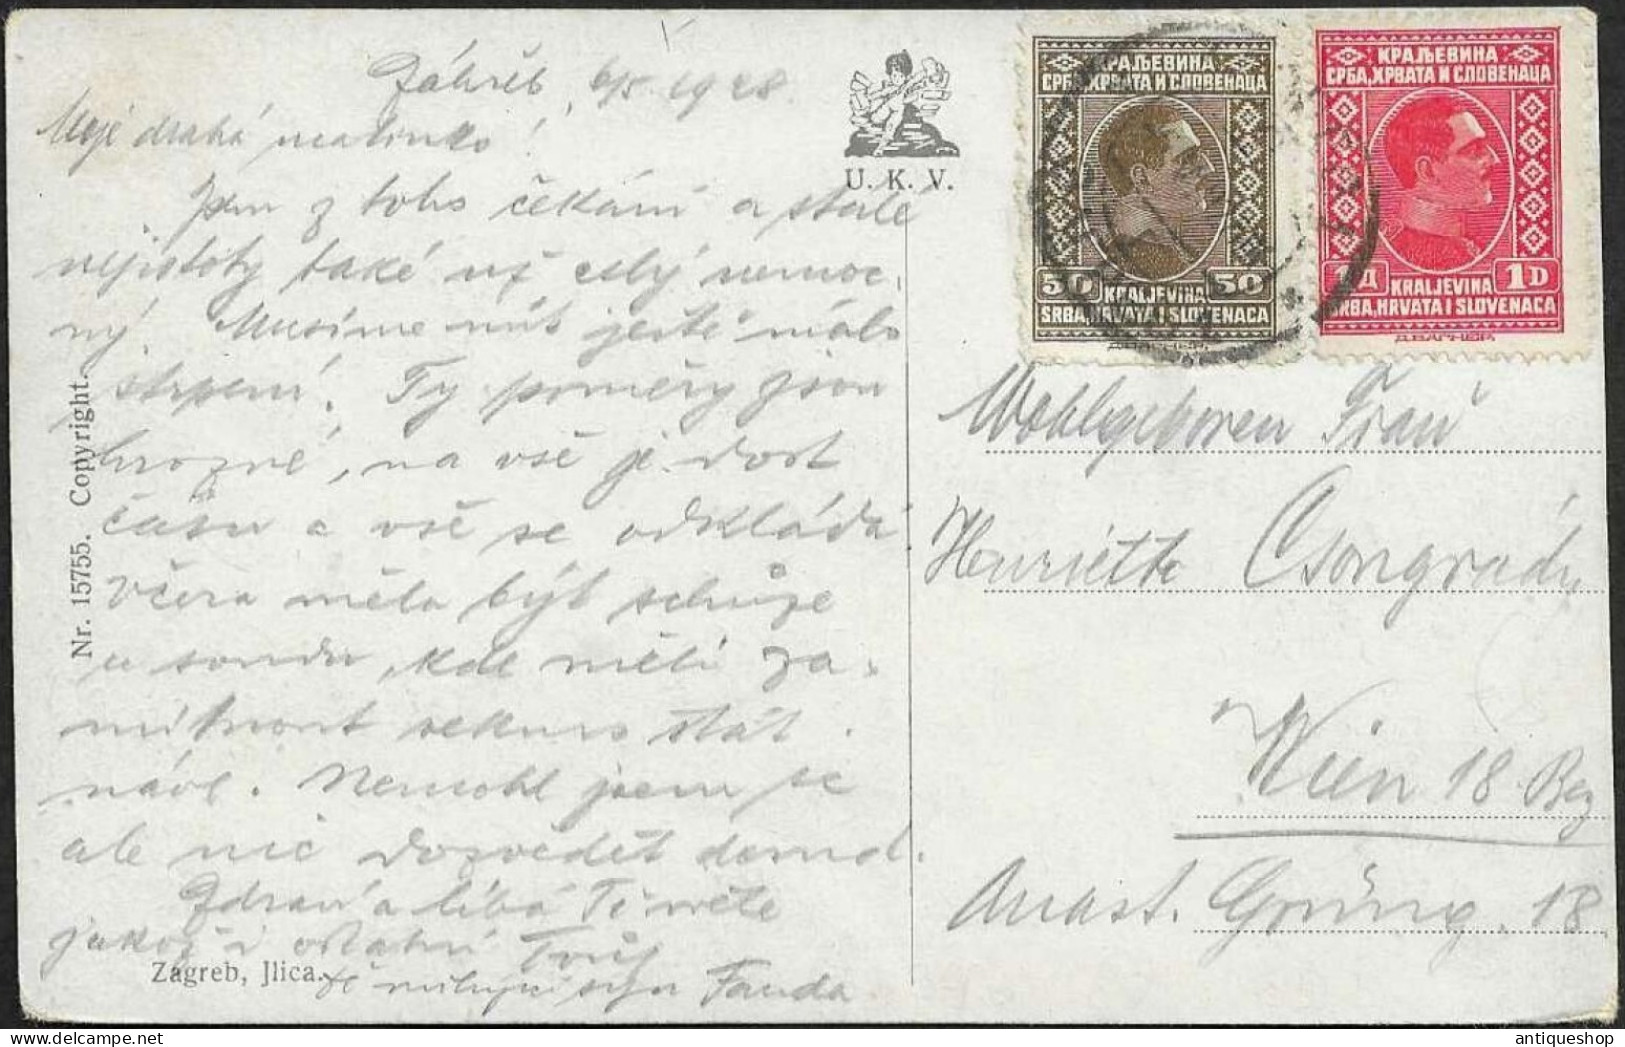 Záhřeb, 6/5. 1928.
Moje drahá matinko!
Jsem z toho čekání a stálé
nejistoty také už celý nemoc-
ný. Musíme mít ještě málo
strpení. Ty poměry jsou
hrozné, na vše je dost
času a vše se odkládá
Včera měla být schůze
u soudu, kde měli za-
mítnout rekurs stát.
návl. Nemohl jsem se
ale nic dozvědět
Zdraví a líbá Tě
jakož i ostatní Tvůj
Tě milující syn Fanda.
Zagreb, Jlica.
Nr. 15755. Copyright.
U. K. V.
КРАЉЕВИНА
СРБА, ХРВАТА И СЛОВЕНАЦА
50 50
KRALJEVINA
SRBA, HRVATA I SLOVENACA
КРАЉЕВИНА
СРБА, ХРВАТА И СЛОВЕНАЦА
1Д 1D
KRALJEVINA
SRBA, HRVATA I SLOVENACA
Wohlgeboren Frau
Henriette Csongrády
Wien 18 Bez
Anast. Grüng. 18
antiqueshop